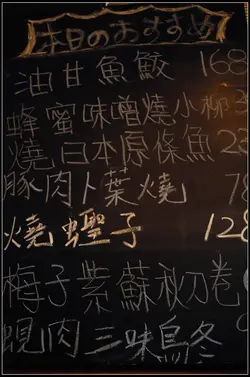 本日のおすすめ
油甘魚鮫 168
蜂蜜味噌燒小柳
燒日本原條魚 28
豚肉卜葉燒 78
燒蟶子 128
梅子紫蘇秋刀卷
蜆肉三味烏冬